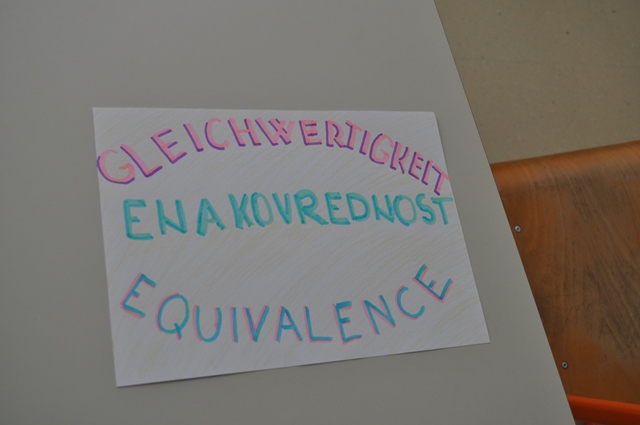 GLEICHWERTIGKEIT
ENAKOVREDNOST
EQUIVALENCE